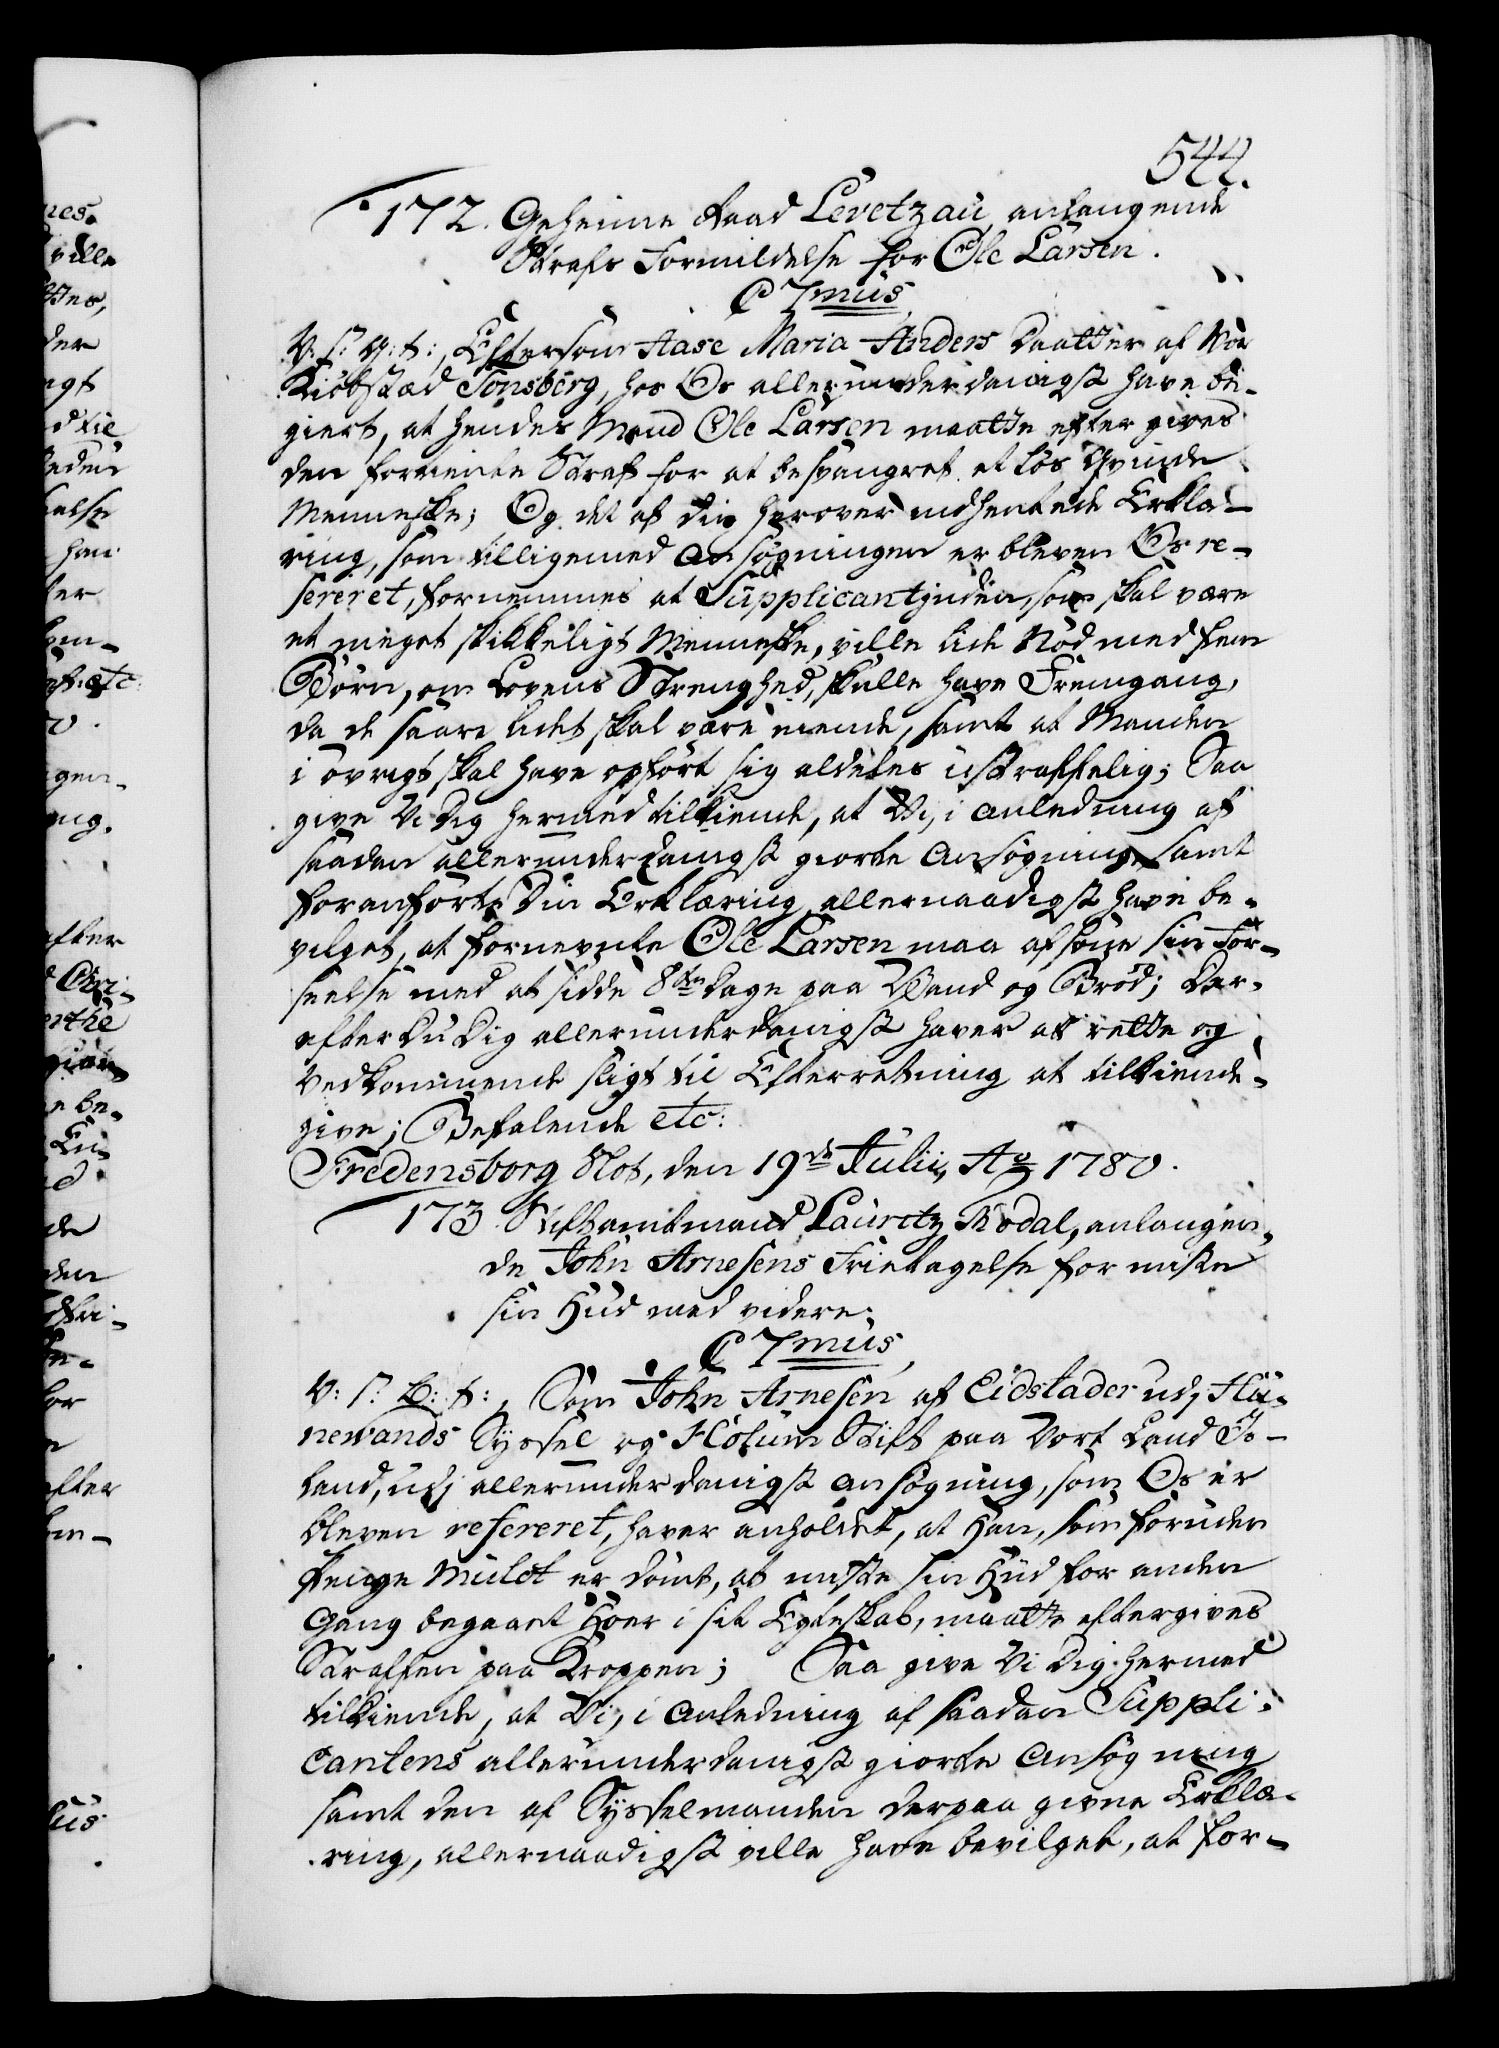 544.
172. Geheime Raad Levetzau anlangende
Straffs Formildelse for Ole Larsen.
C 7mus
V: S: G: t:, Eftersom Aase Maria Anders Daatter af Vor
Kiöbstæd Tönsberg, hos Os allerunderdanigst have be-
giert, at hendes Mand Ole Larsen maatte efter gives
den fortiente Straf for at besvangret et løs Qvinde
Menneske; Og det af din herover indhentede Erklæ-
ring, som tilligemed Ansøgningen er bleven Os re-
fereret, fornemmes at Supplicantinden, som skal være
et meget skikkeligt Menneske, ville lide Nød med fem
Børn, om Lovens Strenghed, skulle have Fremgang,
da de saare lidet skal være eiende, samt at Manden
i øvrigt skal have opført sig aldeles ustraffelig; Saa
give Vi Dig hermed tilkiende, at Vi, i Anledning af
saadan allerunderdanigst giorte Ansøgning, samt
foranførte Din Erklæring allernaadigst have be-
vilget, at fornevnte Ole Larsen maa afsone sin For-
seelse med at sidde 8te Dage paa Vand og Brød; Der-
efter Du Dig allerunderdanigst haver at rette og
Vedkommende sligt til Efterretning at tilkiende-
give; Befalende etc:
Fredensborg Slot, den 19de Julii, Ao 1780.
173. Stiftamtmand Lauritz Thodal, anlangen-
de John Arnesens Frietagelse for miste
sin Hud med videre.
C 7mus,
V: S: G: t:, Som John Arnesen af Eidstader udj Hu-
newands Syssel og Holum Stift paa Vort Land Is-
land, udj allerunderdanigst Ansøgning, som Os er
bleven refereret, haver anholdet, at Han, som foruden
Penge Mulct er dömt, at miste sin Hud for anden
Gang begaaet Hoer i sit Egteskab, maatte eftergives
Straffen paa Kroppen; Saa give Vi Dig hermed
tilkiende, at Vi, i Anledning af saadan Suppli-
cantens allerunderdanigst giorte Ansøgning
samt den af Sysselmanden derpaa givne Erklæ-
ring, allernaadigst ville have bevilget, at for-